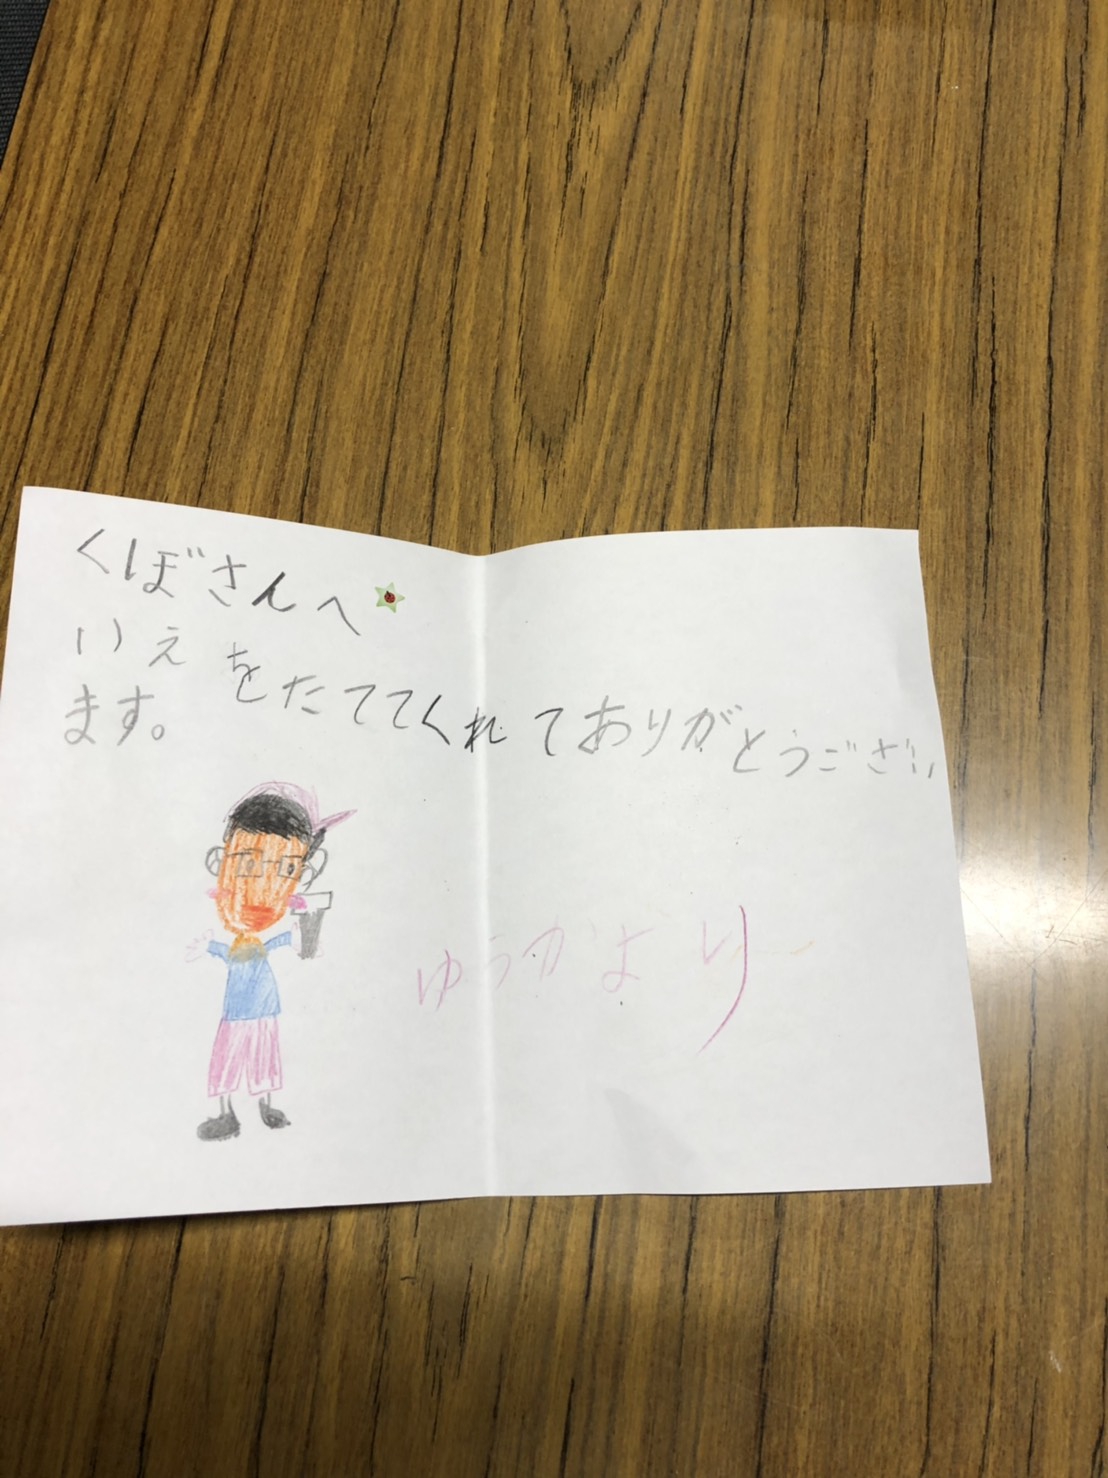 くぼさんへ
いえをたててくれてありがとうござい
ます。
ゆうかより